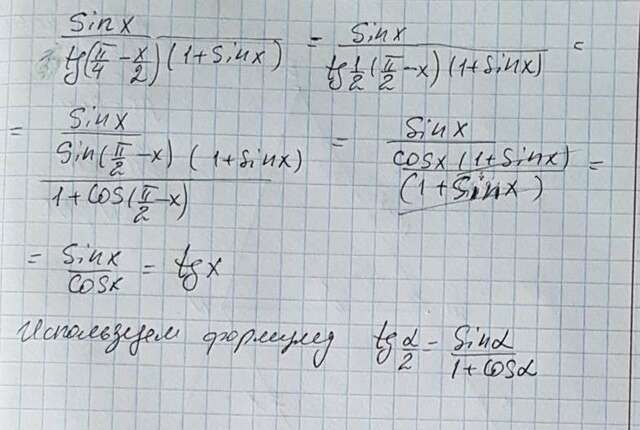 sinx / (tg(π/4 − x/2) (1+sinx)) = sinx / (tg 1/2 (π/2 − x) (1+sinx)) =
= sinx / (sin(π/2 − x) (1+sinx) / (1+cos(π/2 − x))) = sinx / (cosx (1+sinx) / (1+sinx)) =
= sinx / cosx = tgx
Используем формулу tg α/2 = sinα / (1+cosα)